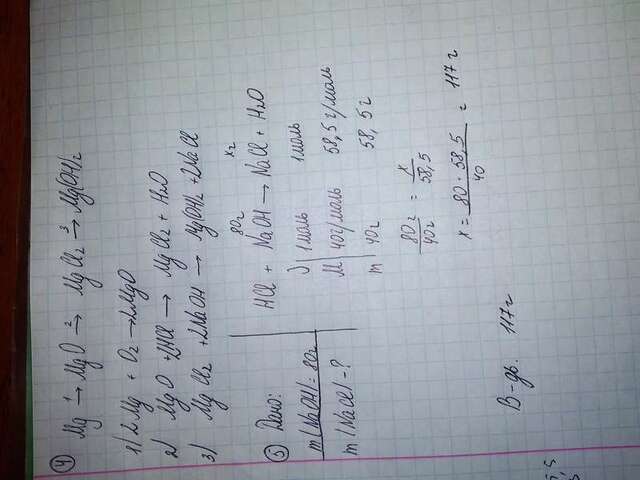 ④ Mg →¹ MgO →² MgCl₂ →³ Mg(OH)₂
1) 2Mg + O₂ → 2MgO
2) MgO + 2HCl → MgCl₂ + H₂O
3) MgCl₂ + 2NaOH → Mg(OH)₂ + 2NaCl
⑤ Дано:
m(NaOH) = 80г
m(NaCl) - ?
80г xг
HCl + NaOH → NaCl + H₂O
ν 1моль 1моль
M 40г/моль 58,5г/моль
m 40г 58,5г
80г/40г = x/58,5
x = 80 · 58,5 / 40 = 117 г
В-дь. 117 г